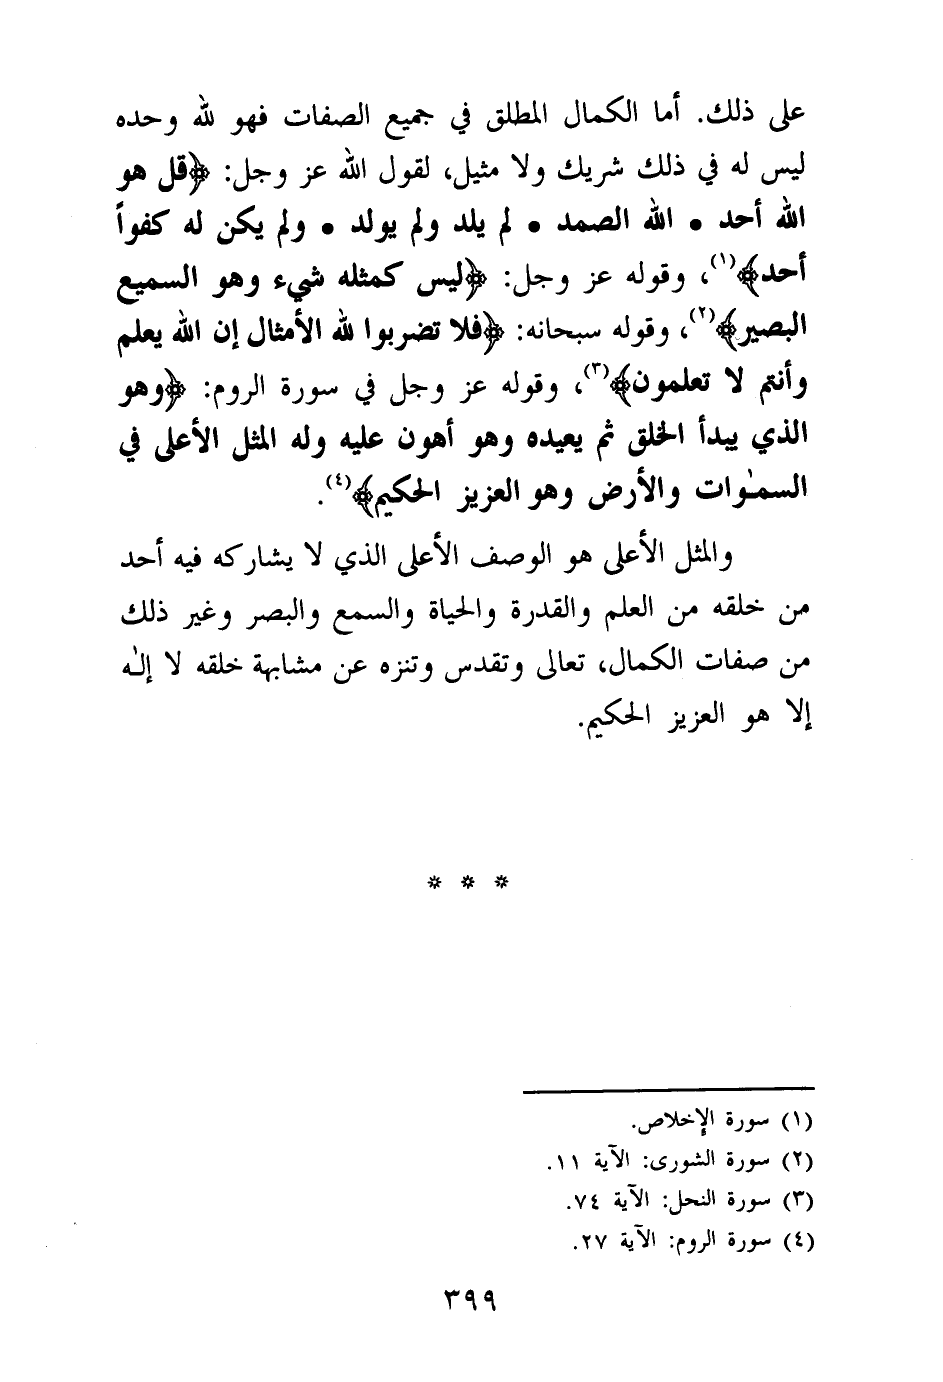 على ذلك. أما الكمال المطلق في جميع الصفات فهو لله وحده
ليس له في ذلك شريك ولا مثيل، لقول الله عز وجل: ﴿قل هو
الله أحد • الله الصمد • لم يلد ولم يولد • ولم يكن له كفواً
أحد﴾(١)، وقوله عز وجل: ﴿ليس كمثله شيء وهو السميع
البصير﴾(٢)، وقوله سبحانه: ﴿فلا تضربوا لله الأمثال إن الله يعلم
وأنتم لا تعلمون﴾(٣)، وقوله عز وجل في سورة الروم: ﴿وهو
الذي يبدأ الخلق ثم يعيده وهو أهون عليه وله المثل الأعلى في
السمٰوات والأرض وهو العزيز الحكيم﴾(٤).
والمثل الأعلى هو الوصف الأعلى الذي لا يشاركه فيه أحد
من خلقه من العلم والقدرة والحياة والسمع والبصر وغير ذلك
من صفات الكمال، تعالى وتقدس وتنزه عن مشابهة خلقه لا إلٰه
إلا هو العزيز الحكيم.
* * *
(١) سورة الإخلاص.
(٢) سورة الشورى: الآية ١١.
(٣) سورة النحل: الآية ٧٤.
(٤) سورة الروم: الآية ٢٧.
٣٩٩